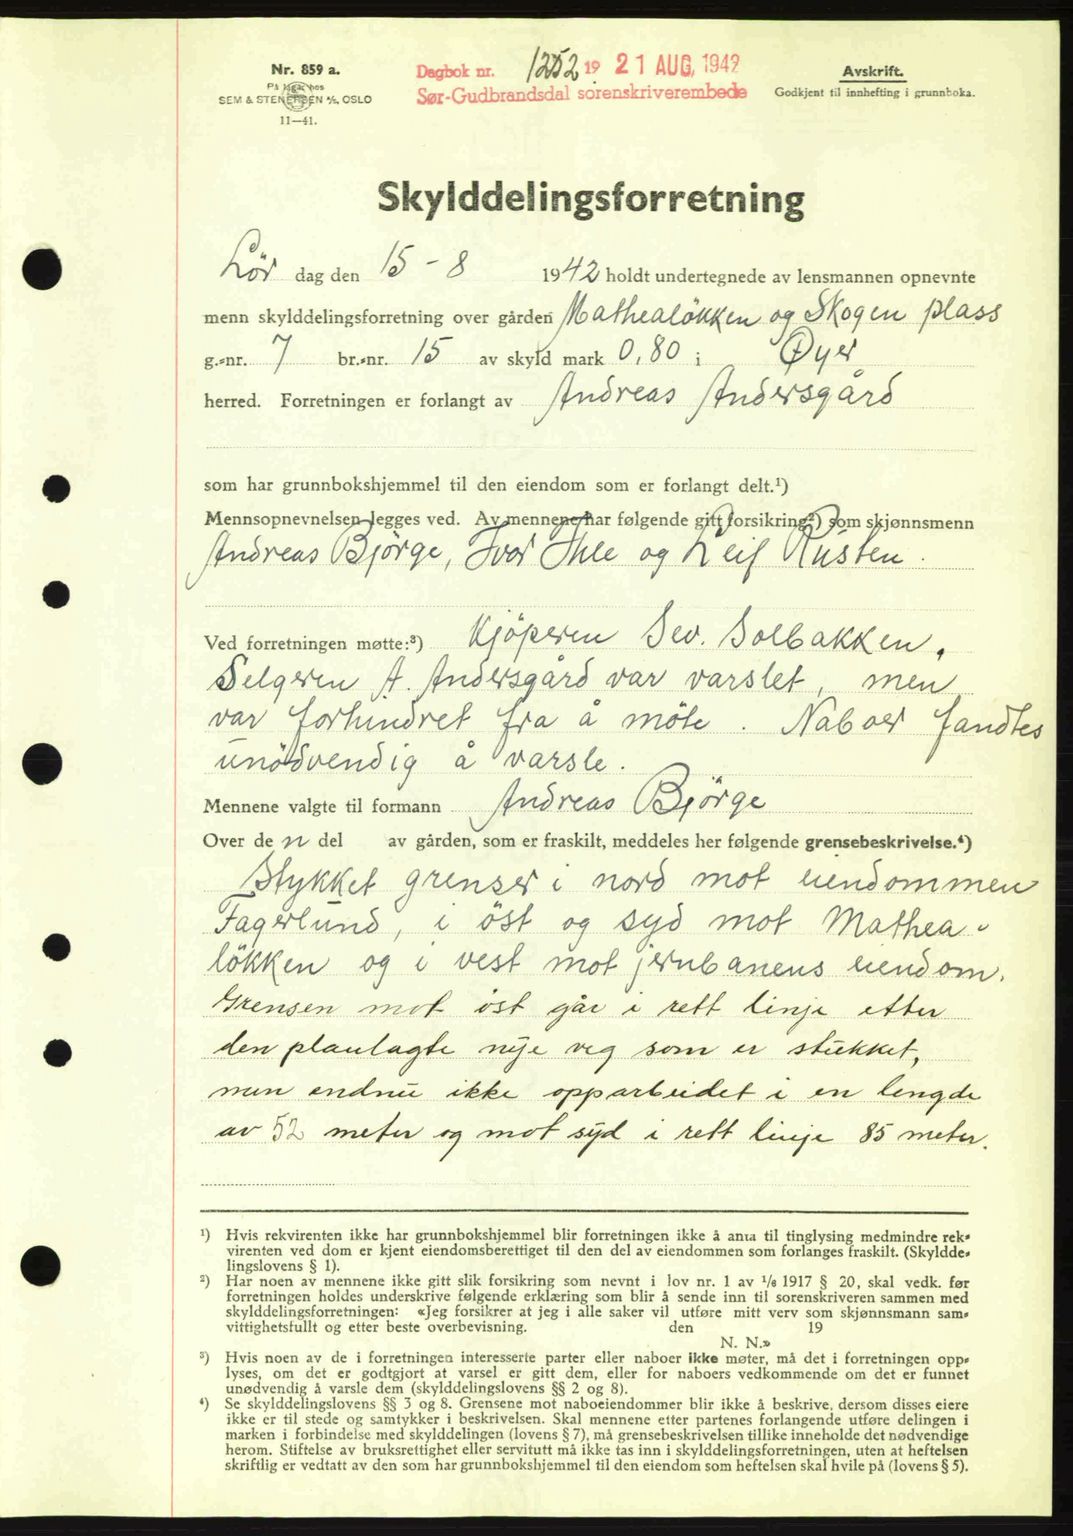 Nr. 859 a.
På lager hos
SEM & STENERSEN A/S, OSLO
11—41.
Dagbok nr. 1252 19 21 AUG. 1942
Sør-Gudbrandsdal sorenskriverembede
Avskrift.
Godkjent til innhefting i grunnboka.
Skylddelingsforretning
Lör dag den 15 - 8 1942 holdt undertegnede av lensmannen opnevnte
menn skylddelingsforretning over gården Mathealökken og Skogen plass
g.-nr. 7 br.-nr. 15 av skyld mark 0,80 i Øyer
herred. Forretningen er forlangt av Andreas Andersgård
som har grunnbokshjemmel til den eiendom som er forlangt delt.¹)
Mennsopnevnelsen legges ved. Av mennene har følgende gitt forsikring²) som skjønnsmenn
Andreas Björge, Ivar Ihle og Leif Rusten.
Ved forretningen møtte:³) Kjöperen Sev. Solbakken.
Selgeren A. Andersgård var varslet, men
var forhindret fra å möte. Naboer fandtes
unödvendig å varsle.
Mennene valgte til formann Andreas Björge
Over de n del av gården, som er fraskilt, meddeles her følgende grensebeskrivelse.⁴)
Stykket grenser i nord mot eiendommen
Fagerlund, i öst og syd mot Mathea-
lökken og i vest mot jernbanens eiendom.
Grensen mot öst går i rett linje etter
den planlagte nye veg som er stukket,
men endnu ikke opparbeidet i en lengde
av 52 meter og mot syd i rett linje 85 meter.
¹) Hvis rekvirenten ikke har grunnbokshjemmel blir forretningen ikke å anta til tinglysing medmindre rek-
virenten ved dom er kjent eiendomsberettiget til den del av eiendommen som forlanges fraskilt. (Skyldde-
lingslovens § 1).
²) Har noen av mennene ikke gitt slik forsikring som nevnt i lov nr. 1 av 1/6 1917 § 20, skal vedk. før
forretningen holdes underskrive følgende erklæring som blir å sende inn til sorenskriveren sammen med
skylddelingsforretningen: «Jeg forsikrer at jeg i alle saker vil utføre mitt verv som skjønnsmann sam-
vittighetsfullt og etter beste overbevisning. den 19
N. N.»
³) Hvis noen av de i forretningen interesserte parter eller naboer ikke møter, må det i forretningen opp-
lyses, om det er godtgjort at varsel er gitt dem, eller for naboers vedkommende om det er funnet
unødvendig å varsle dem (skylddelingslovens §§ 2 og 8).
⁴) Se skylddelingslovens §§ 3 og 8. Grensene mot naboeiendommer blir ikke å beskrive, dersom disses eiere
ikke er til stede og samtykker i beskrivelsen. Skal mennene etter partenes forlangende utføre delingen i
marken i forbindelse med skylddelingen (lovens § 7), må grensebeskrivelsen tillike inneholde det nødvendige
herom. Stiftelse av bruksrettighet eller servitutt må ikke tas inn i skylddelingsforretningen, uten at heftelsen
skriftlig er vedtatt av den som har grunnbokshjemmel til den eiendom som heftelsen skal hvile på (lovens § 5).